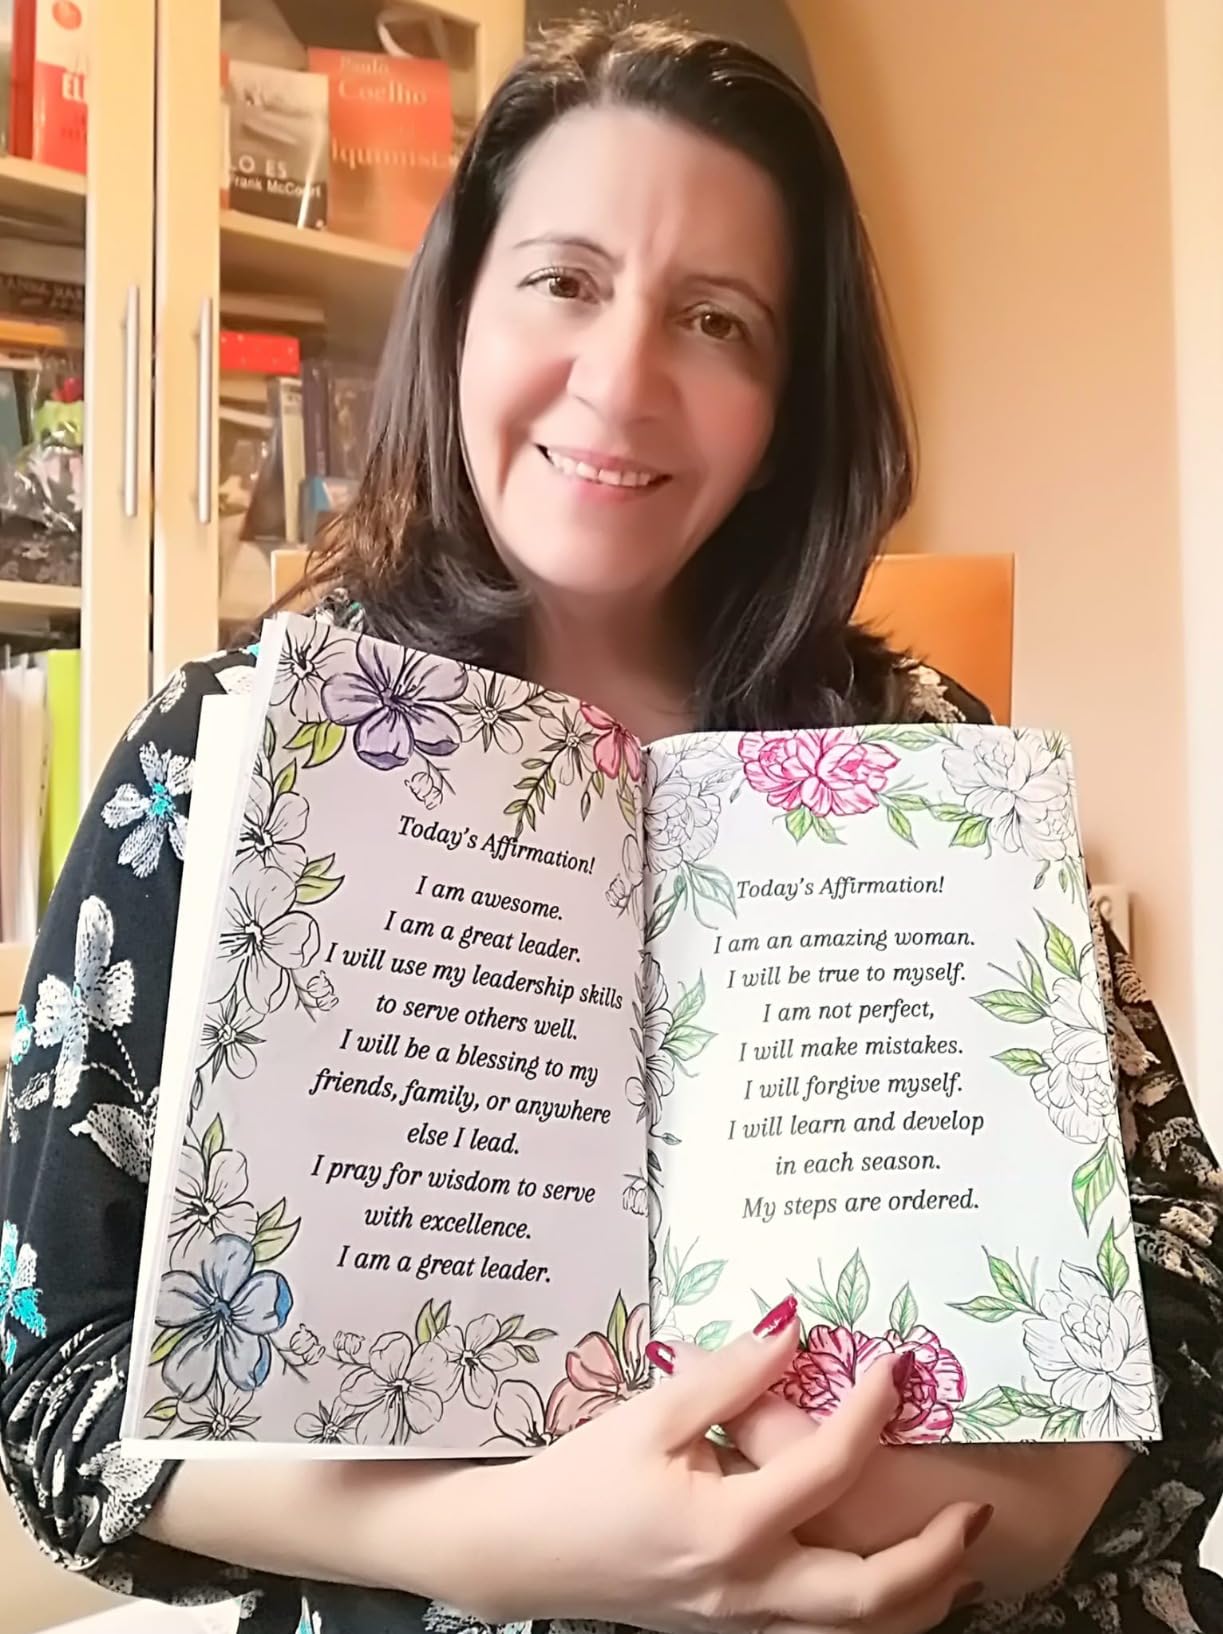 Paulo
Coelho
lquimista
LO ES
Frank McCourt
Today's Affirmation!
I am awesome.
I am a great leader.
I will use my leadership skills
to serve others well.
I will be a blessing to my
friends, family, or anywhere
else I lead.
I pray for wisdom to serve
with excellence.
I am a great leader.
Today's Affirmation!
I am an amazing woman.
I will be true to myself.
I am not perfect,
I will make mistakes.
I will forgive myself.
I will learn and develop
in each season.
My steps are ordered.